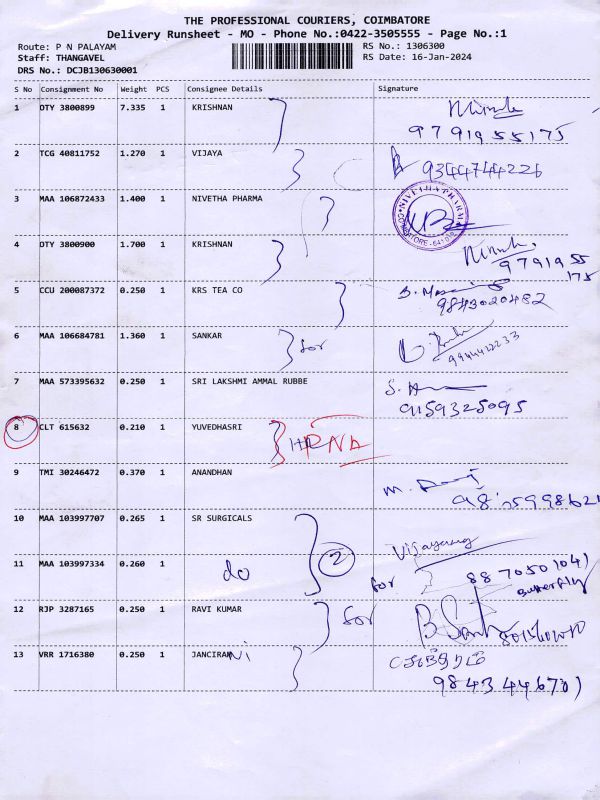 THE PROFESSIONAL COURIERS, COIMBATORE
Delivery Runsheet - MO - Phone No.:0422-3505555 - Page No.:1
Route: P N PALAYAM RS No.: 1306300
Staff: THANGAVEL RS Date: 16-Jan-2024
DRS No.: DCJB130630001
S No Consignment No Weight PCS Consignee Details Signature
1 DTY 3800899 7.335 1 KRISHNAN
9791955175
2 TCG 40811752 1.270 1 VIJAYA 9344744226
3 MAA 106872433 1.400 1 NIVETHA PHARMA NIVETHA PHARMA COIMBATORE
4 DTY 3800900 1.700 1 KRISHNAN
9791955
175
5 CCU 200087372 0.250 1 KRS TEA CO
9843020482
6 MAA 106684781 1.360 1 SANKAR for
9944422233
7 MAA 573395632 0.250 1 SRI LAKSHMI AMMAL RUBBE
9159325095
8 CLT 615632 0.210 1 YUVEDHASRI RNA
9 TMI 30246472 0.370 1 ANANDHAN
10 MAA 103997707 0.265 1 SR SURGICALS
Vijayang
11 MAA 103997334 0.260 1 do 2 for 887050104)
Butterfly
12 RJP 3287165 0.250 1 RAVI KUMAR for
13 VRR 1716380 0.250 1 JANCIRANI